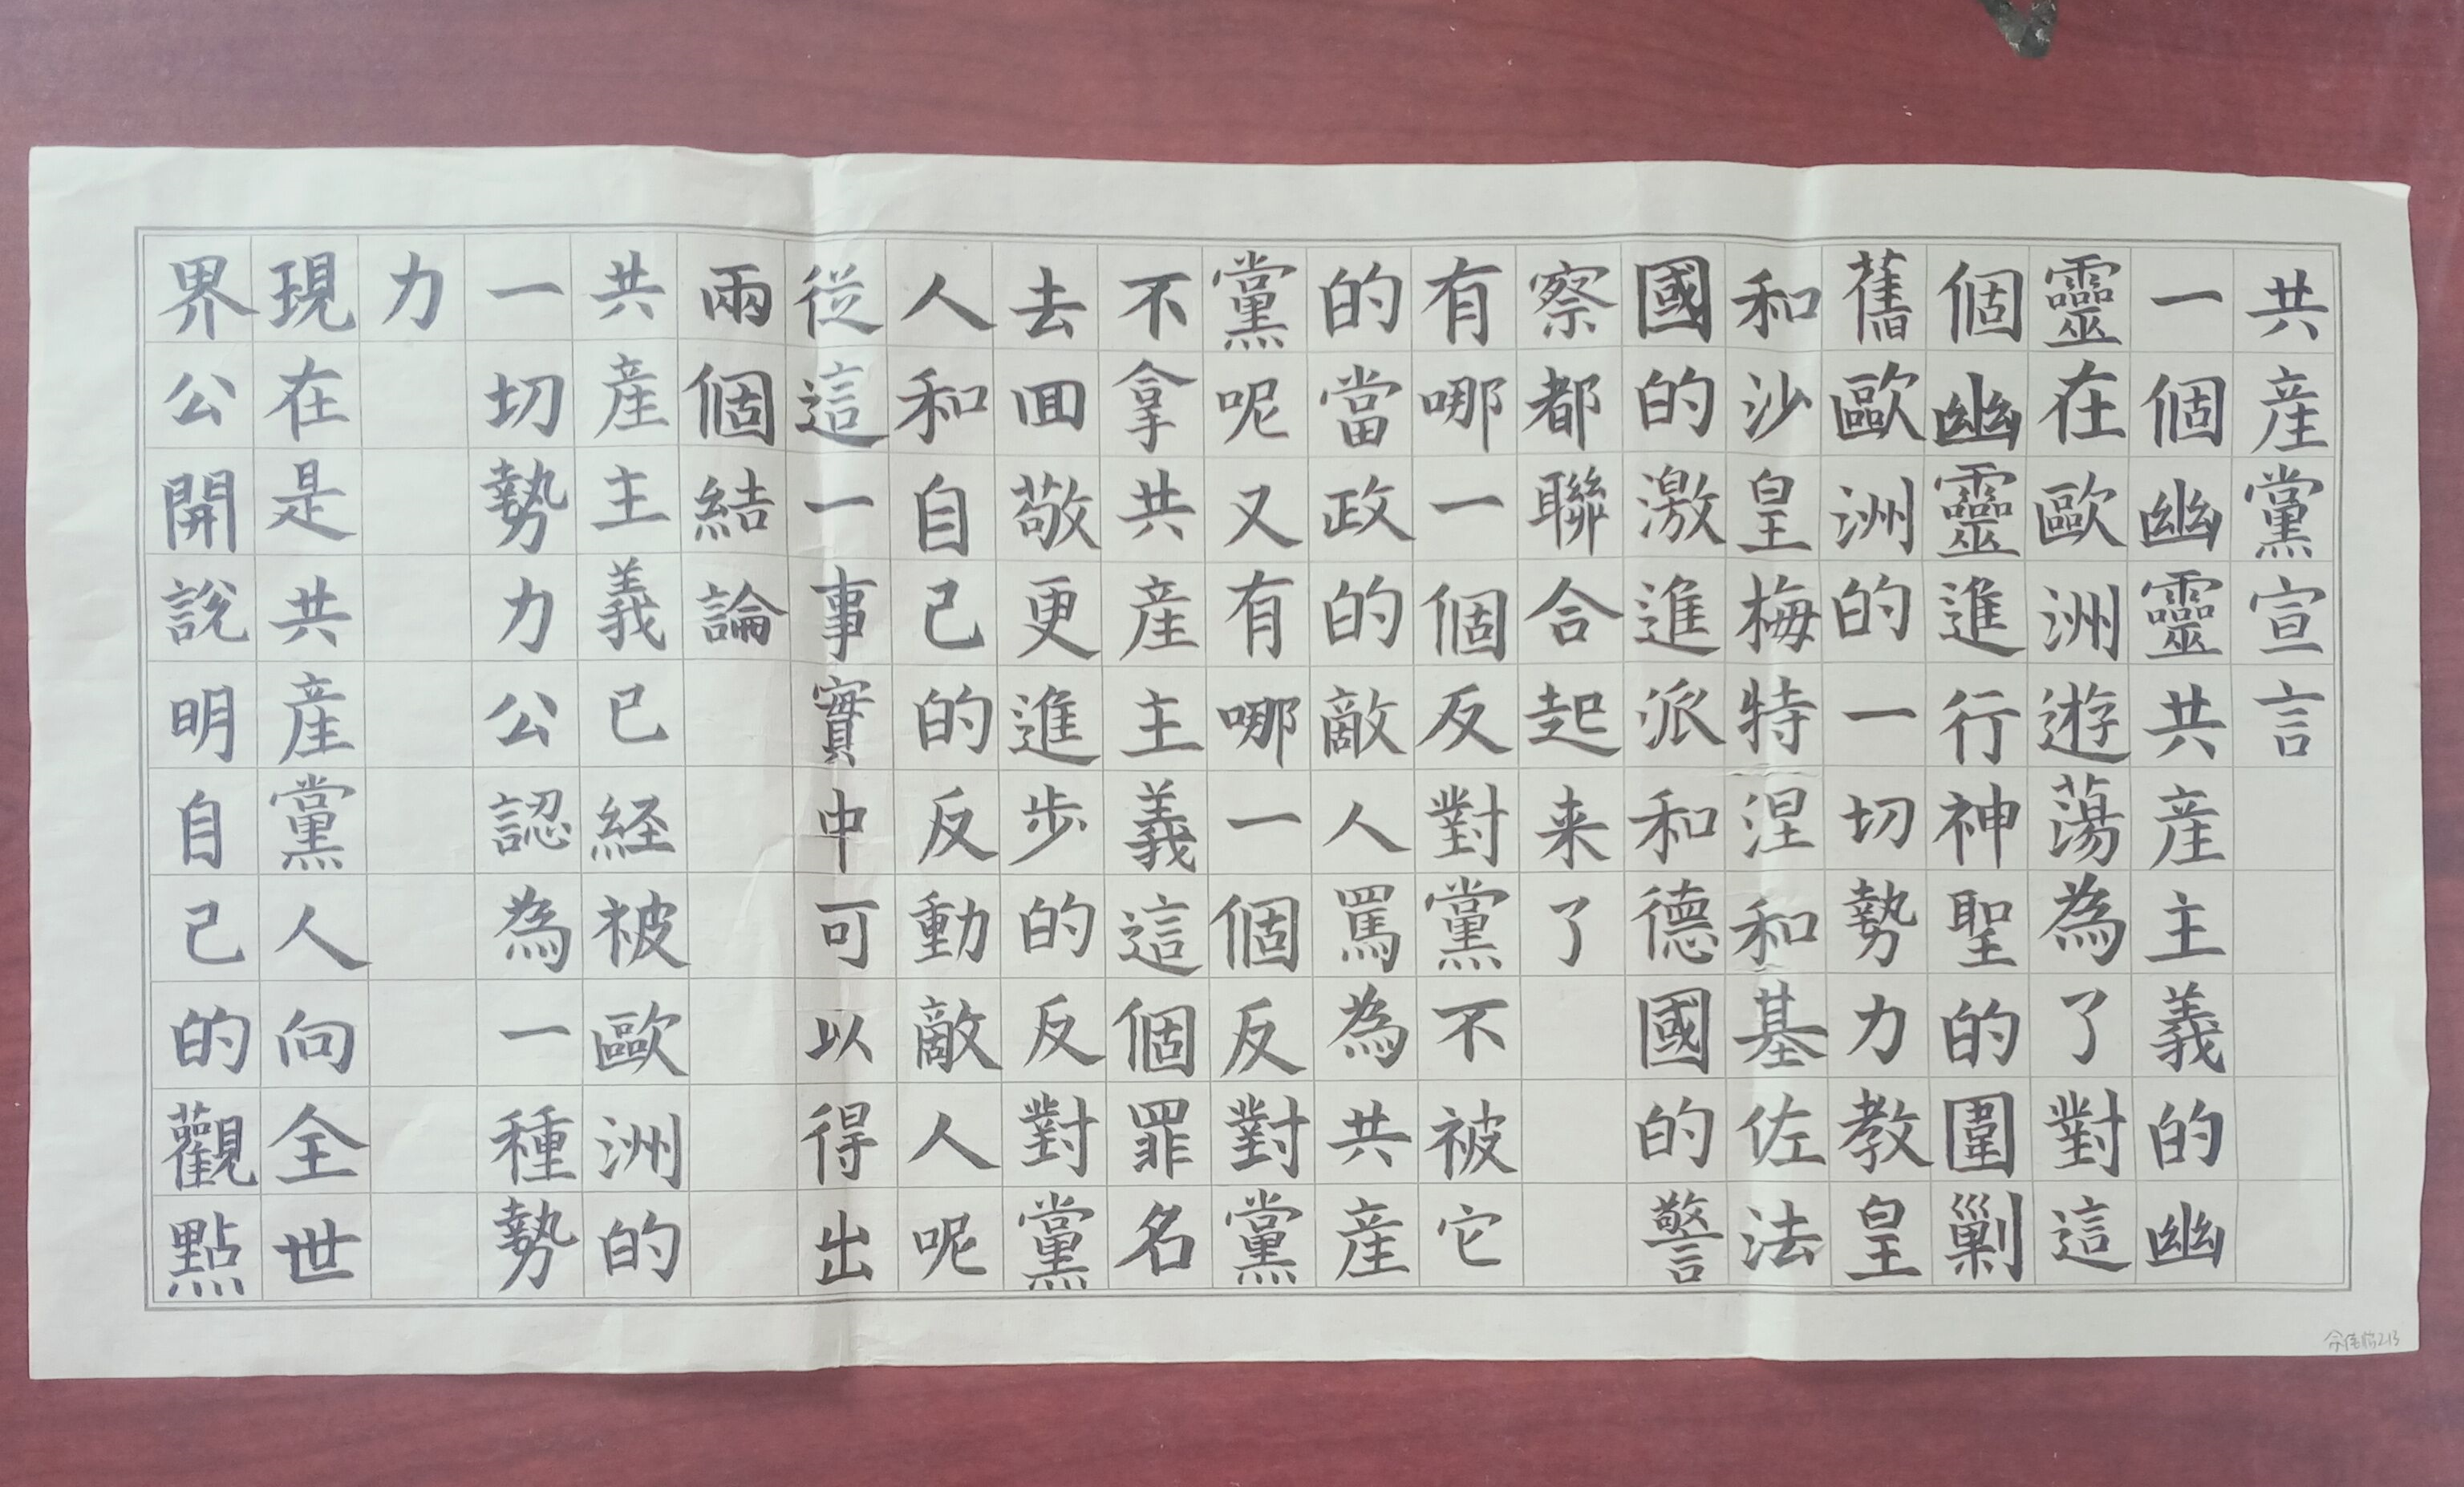 共産黨宣言
一個幽靈共産主義的幽
靈在歐洲遊蕩為了對這
個幽靈進行神聖的圍剿
舊歐洲的一切勢力教皇
和沙皇梅特涅和基佐法
國的激進派和德國的警
察都聯合起来了
有哪一個反對黨不被它
的當政的敵人罵為共産
黨呢又有哪一個反對黨
不拿共産主義這個罪名
去回敬更進步的反對黨
人和自己的反動敵人呢
從這一事實中可以得出
兩個結論
共産主義已経被歐洲的
一切勢力公認為一種勢
力
現在是共産黨人向全世
界公開説明自己的觀點